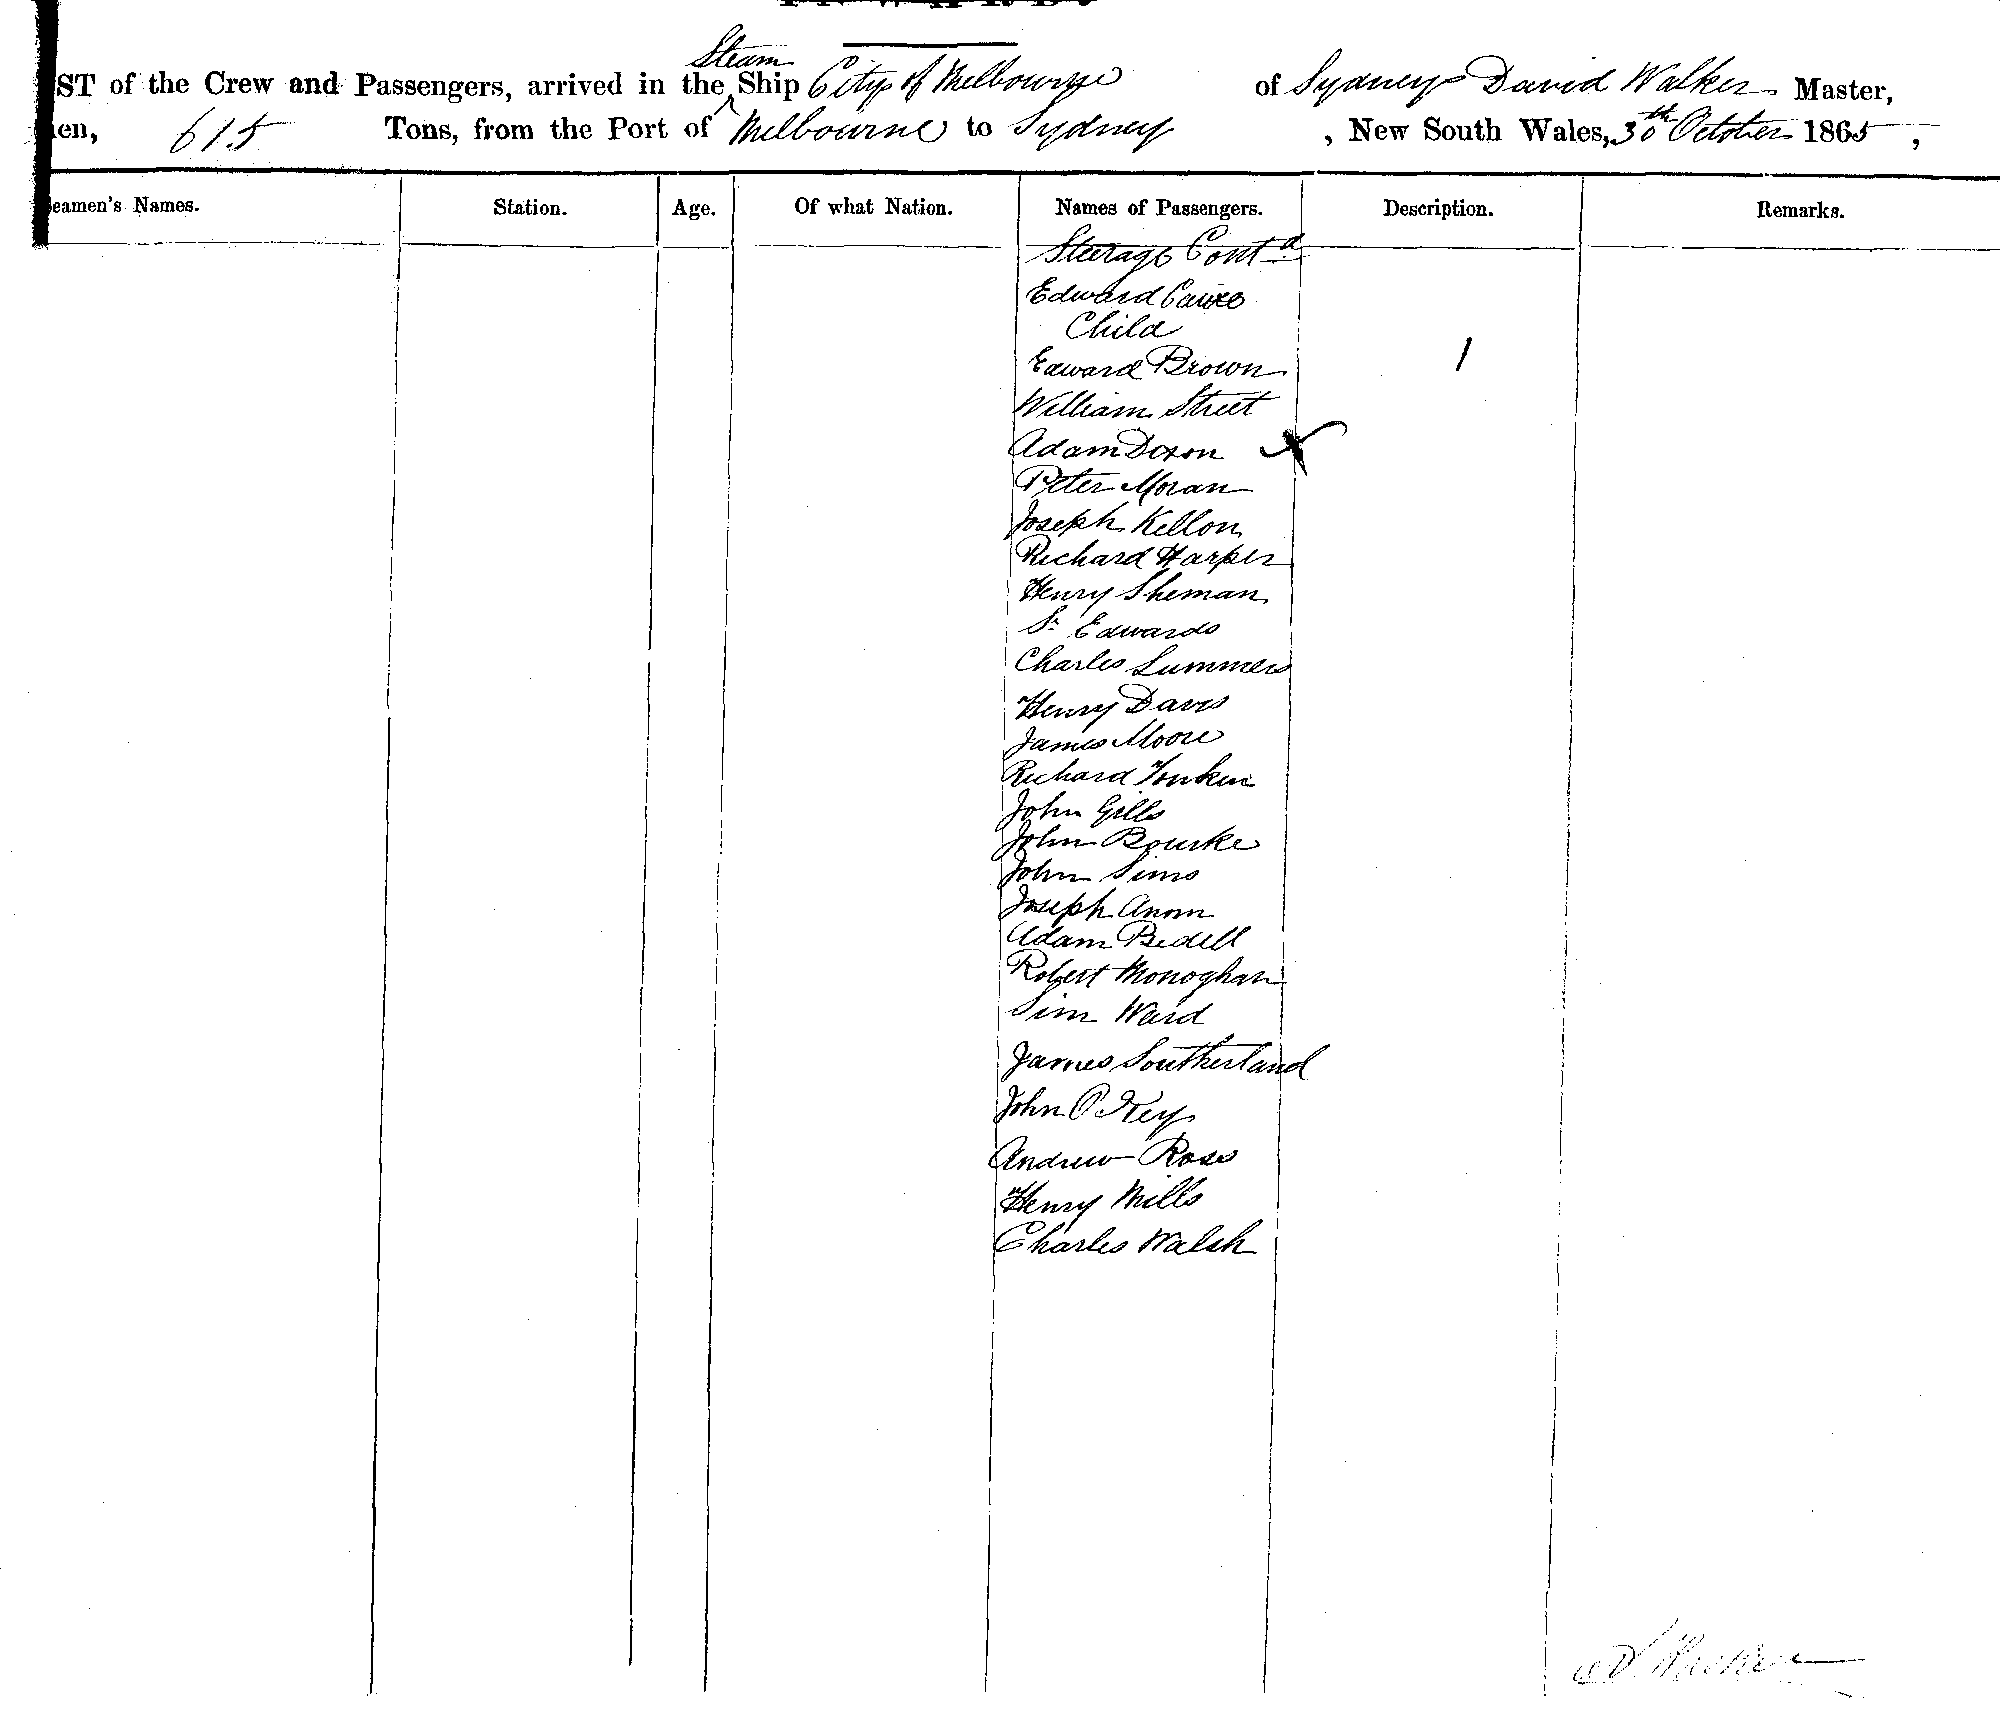 ST of the Crew and Passengers, arrived in the Steam Ship City of Melbourne of Sydney David Walker Master,
en, 615 Tons, from the Port of Melbourne to Sydney, New South Wales, 30th October 1865,
eamen's Names. Station. Age. Of what Nation. Names of Passengers. Description. Remarks.
Steerage Contd
Edward
Child
Edward Brown 1
William Street
Adam Dixon X
Peter Moran
Joseph Kellon
Richard Harper
Henry Sheman
Sr Edwards
Charles Summers
Henry Davis
James Moore
Richard Tonkin
John Gills
John Bourke
John Sims
Joseph Anom
Adam Bedell
Robert Monoghan
Sim Ward
James Southerland
John O Key
Andrew Ross
Henry Mills
Charles Walsh
D Walker